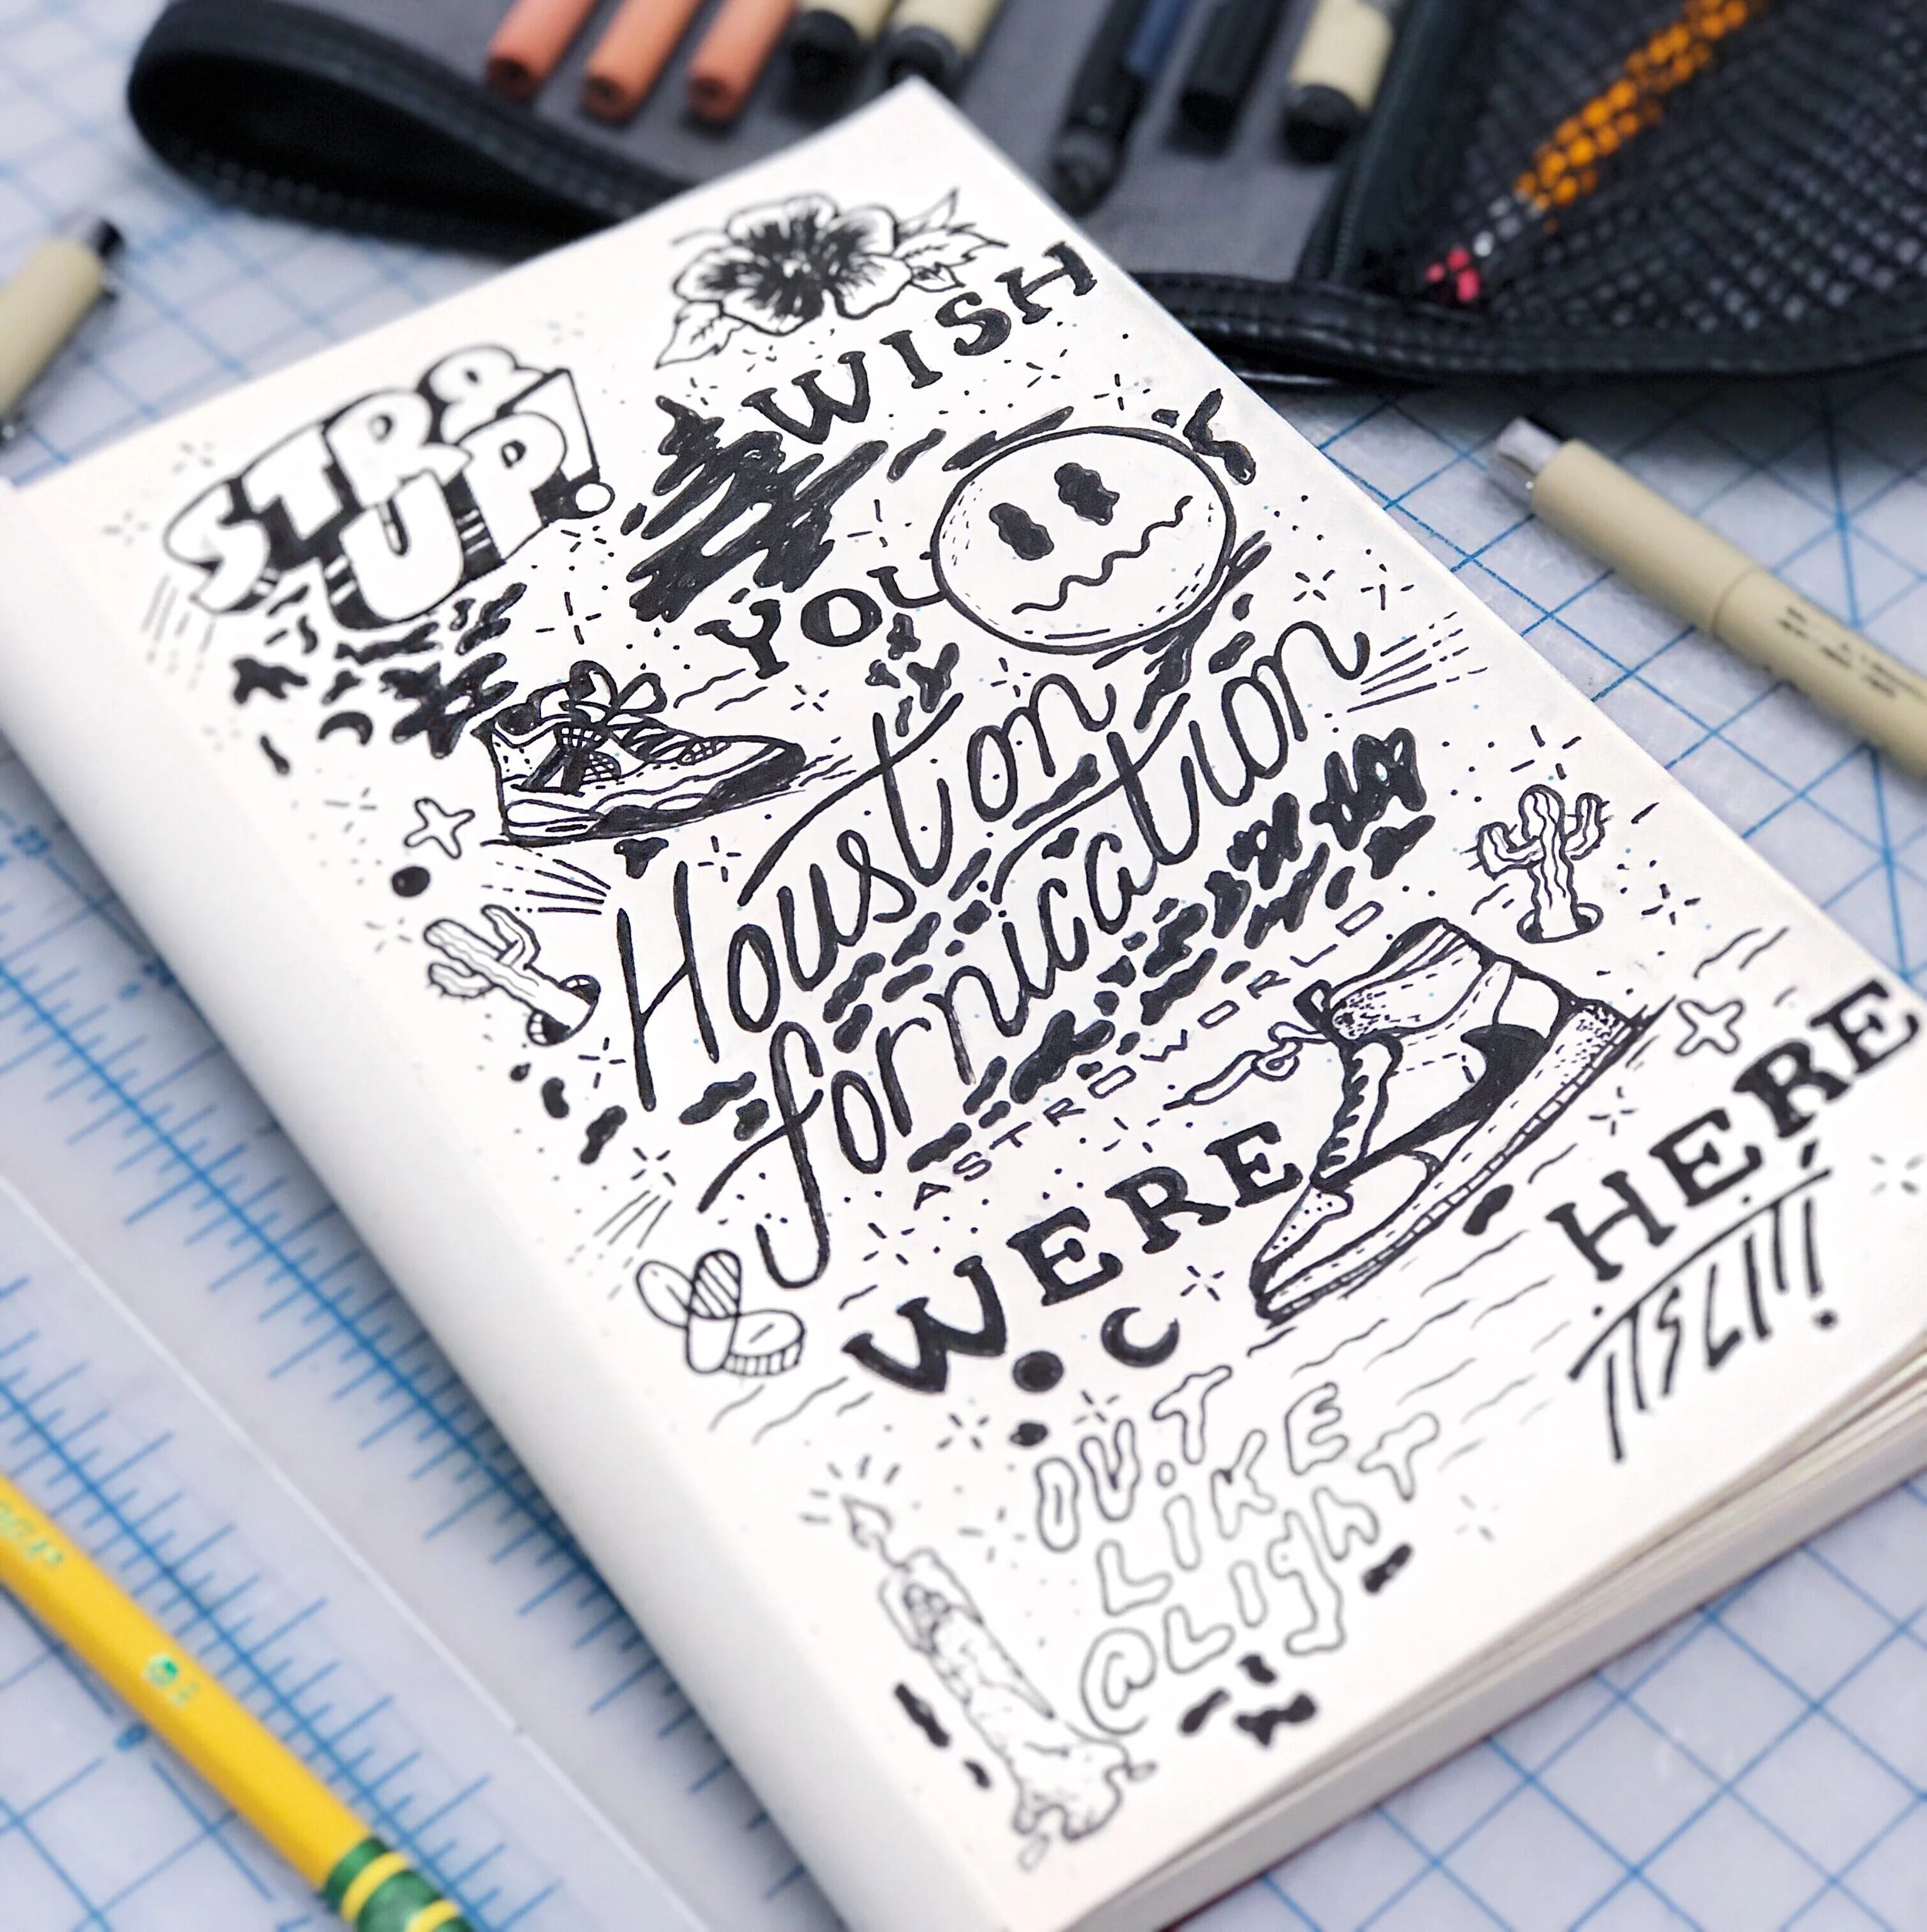 STR8
UP!
WISH
YOU
Houston
fornication
ASTROWORLD
WERE
HERE
ITSLIT!
OUT
LIKE
@LIGHT